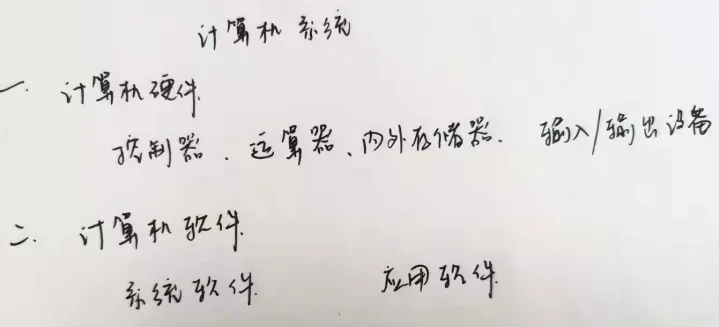 计算机系统
一. 计算机硬件.
控制器、运算器、内外存储器. 输入/输出设备
二. 计算机软件.
系统软件. 应用软件.